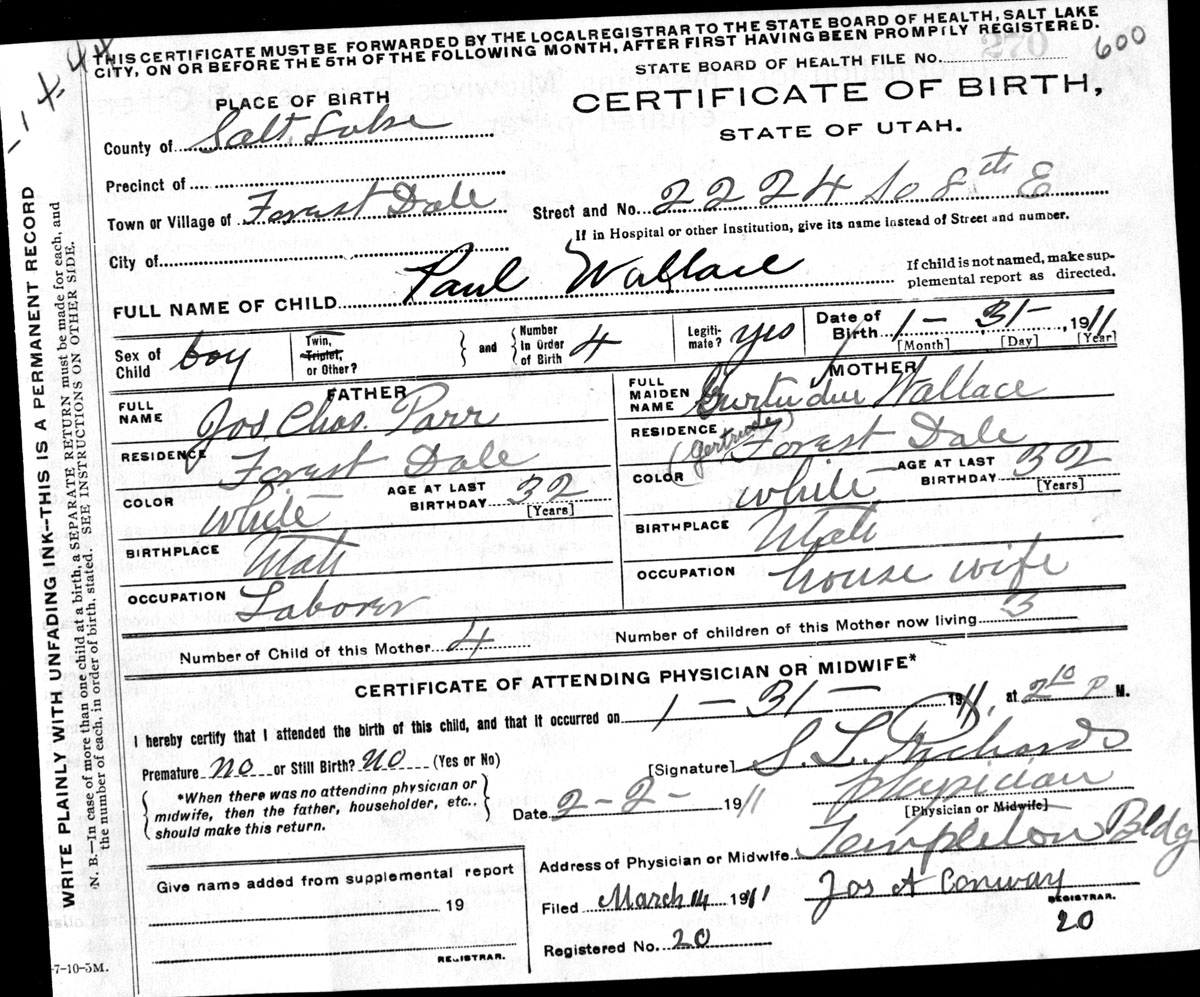 THIS CERTIFICATE MUST BE FORWARDED BY THE LOCAL REGISTRAR TO THE STATE BOARD OF HEALTH, SALT LAKE
CITY, ON OR BEFORE THE 5TH OF THE FOLLOWING MONTH, AFTER FIRST HAVING BEEN PROMPTLY REGISTERED.
STATE BOARD OF HEALTH FILE NO. 600
PLACE OF BIRTH
CERTIFICATE OF BIRTH,
STATE OF UTAH.
County of Salt Lake
Precinct of
Town or Village of Forest Dale
Street and No. 2224 So 8th E
If in Hospital or other Institution, give its name instead of Street and number.
City of
FULL NAME OF CHILD Paul Wallace
If child is not named, make sup-
plemental report as directed.
Sex of Child boy
Twin, Triplet, or Other?
and
Number In Order of Birth 4
Legiti-mate? yes
Date of Birth 1 - 31 - , 1911
[Month] [Day] [Year]
FATHER
FULL NAME Jos. Chas. Parr
RESIDENCE Forest Dale
COLOR White AGE AT LAST BIRTHDAY 32
[Years]
BIRTHPLACE Utah
OCCUPATION Laborer
MOTHER
FULL MAIDEN NAME Gurtrudue Wallace
(Gertrude)
RESIDENCE Forest Dale
COLOR White AGE AT LAST BIRTHDAY 32
[Years]
BIRTHPLACE Utah
OCCUPATION house wife
Number of Child of this Mother 4 Number of children of this Mother now living 3
CERTIFICATE OF ATTENDING PHYSICIAN OR MIDWIFE*
I hereby certify that I attended the birth of this child, and that it occurred on 1 - 31 - 1911, at 2 10 P M.
Premature NO or Still Birth? NO (Yes or No)
[Signature] S. L. Richards
*When there was no attending physician or
midwife, then the father, householder, etc.,
should make this return.
Date 2 - 2 - 1911
physician
[Physician or Midwife]
Address of Physician or Midwife Templeton Bldg
Give name added from supplemental report
19
REGISTRAR.
Filed March 14 1911 Jos A Conway
REGISTRAR.
Registered No. 20
20
7-10-5M.
WRITE PLAINLY WITH UNFADING INK--THIS IS A PERMANENT RECORD
N. B.—In case of more than one child at a birth, a SEPARATE RETURN must be made for each, and
the number of each, in order of birth, stated. SEE INSTRUCTIONS ON OTHER SIDE.